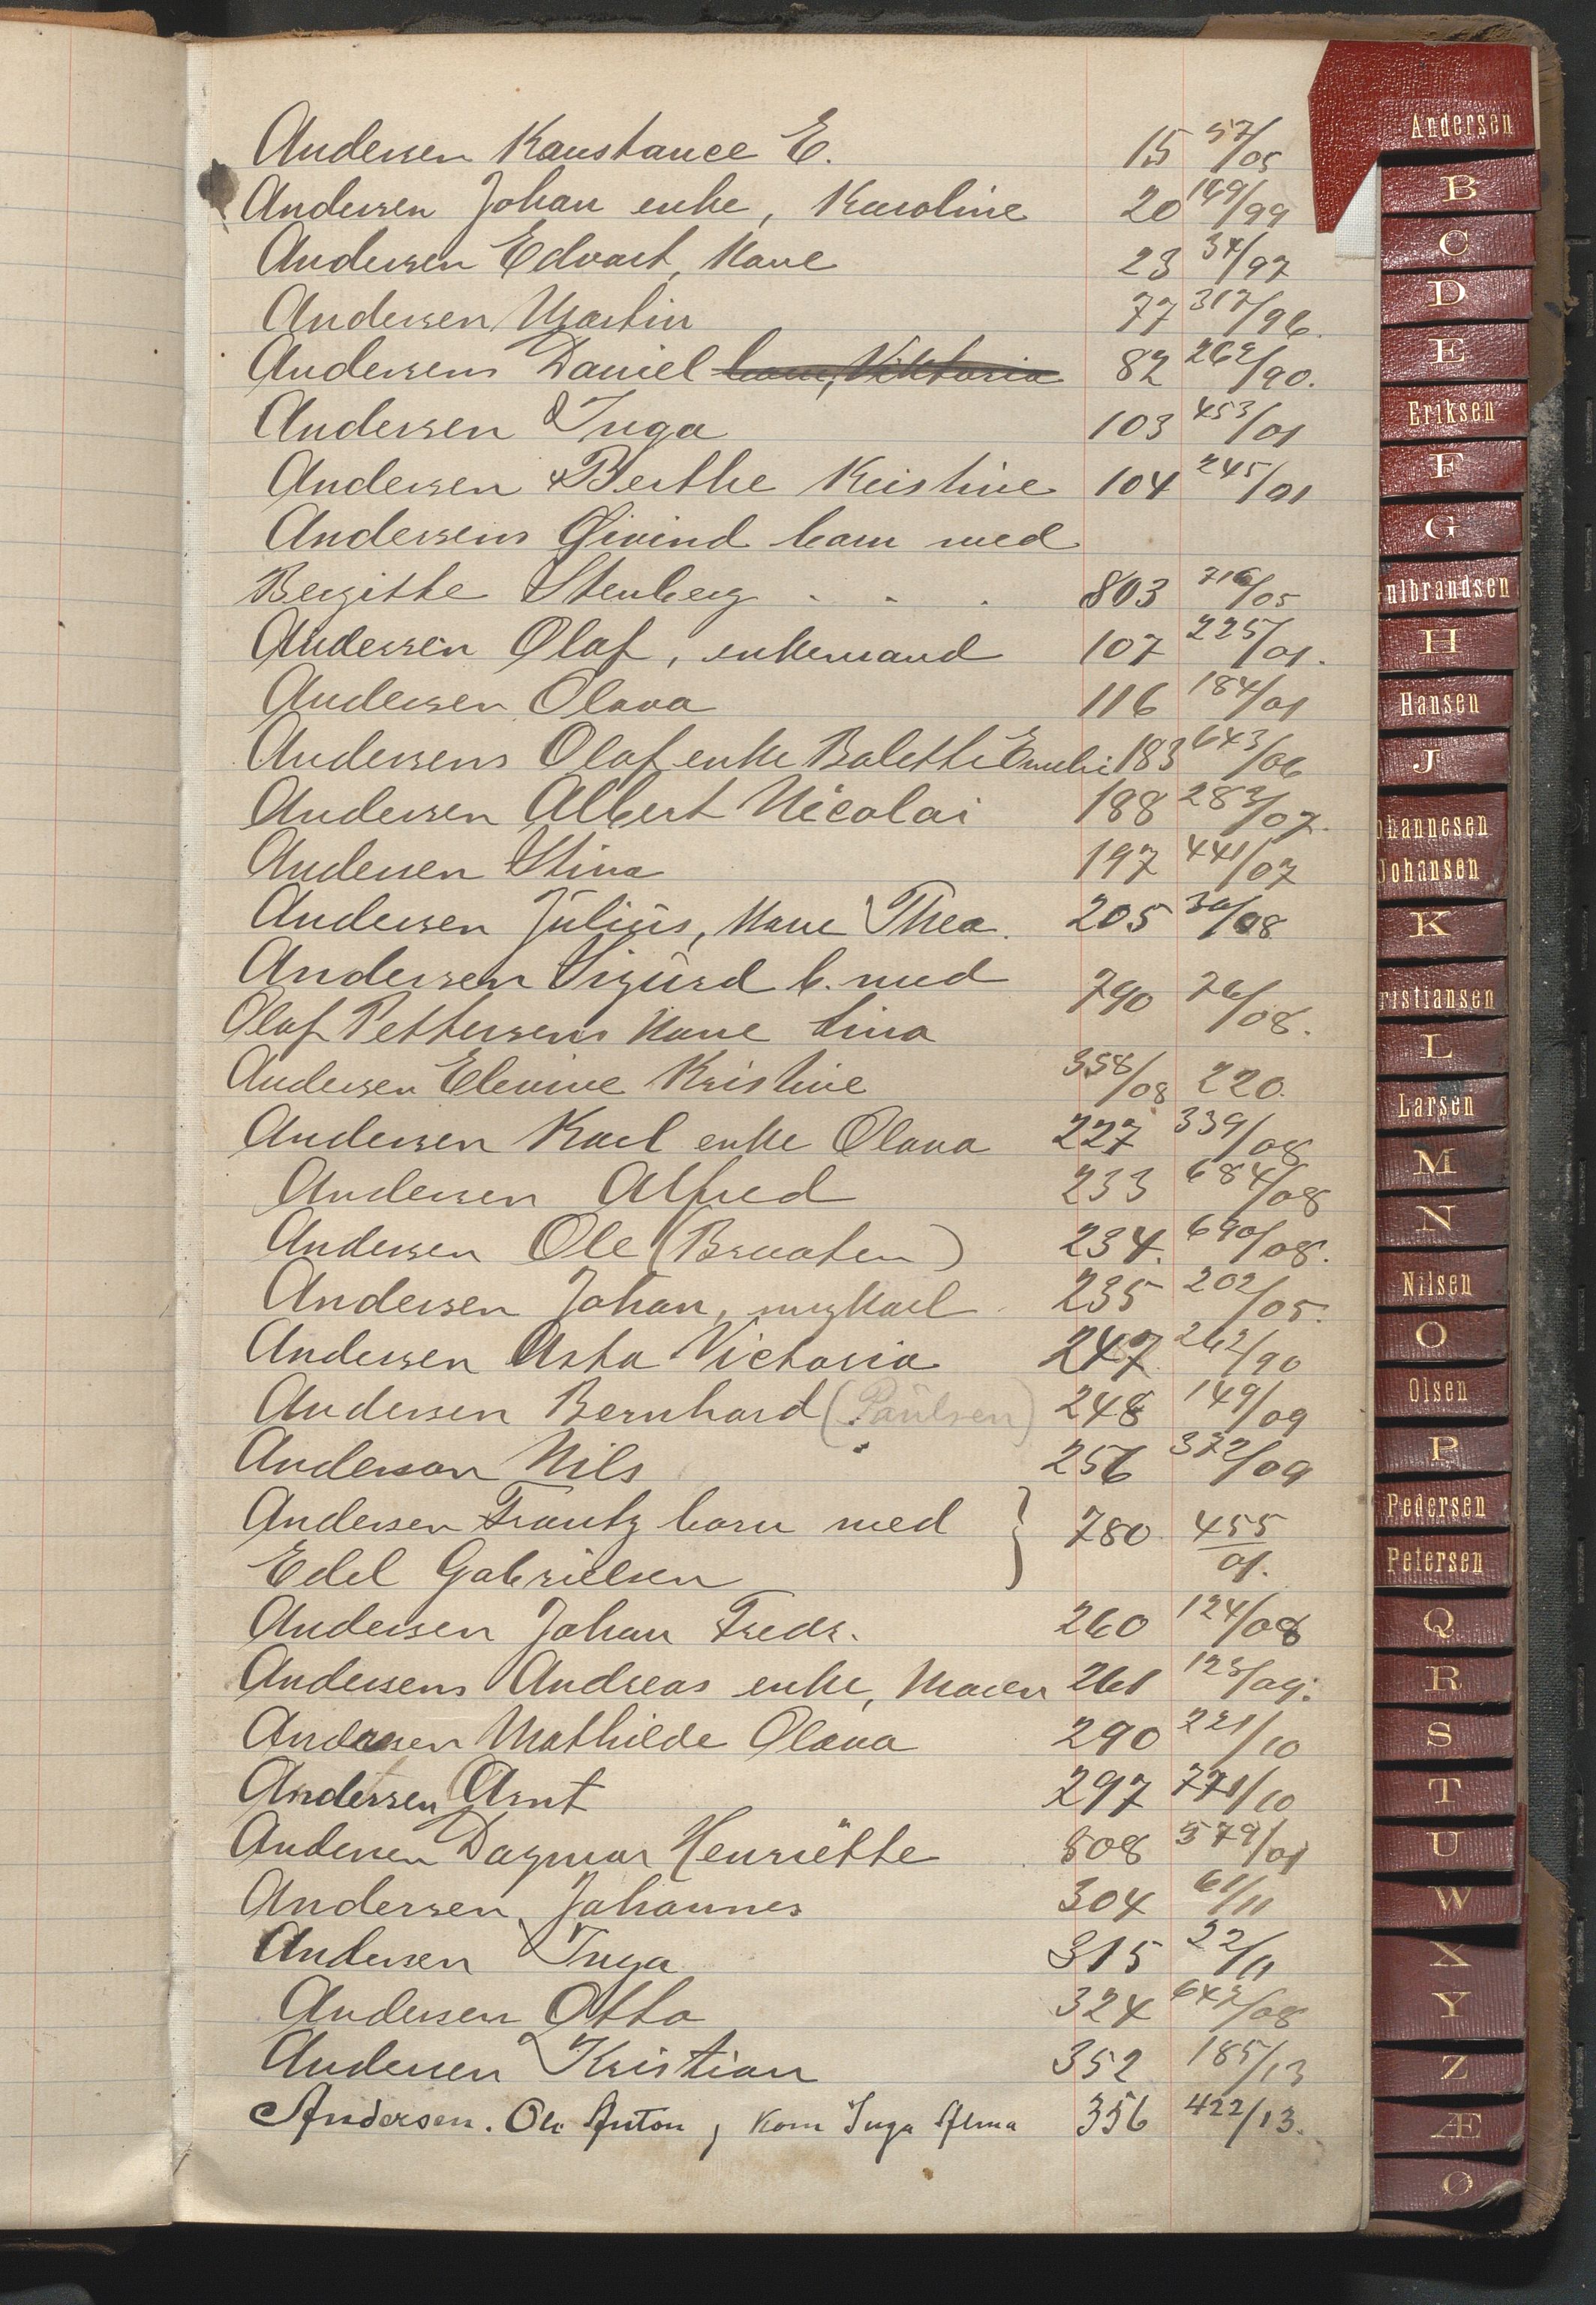 Andersen Konstance E. 15 57/05
Andersen Johan enke, Karoline 20 149/99
Andersen Edvart, Kone 23 34/97
Andersen Martin 77 317/96.
Andersens Daniel barn, Viktoria 82 262/90.
Andersen Inga 103 453/01
Andersen Berthe Kristine 104 245/01
Andersens Øivind barn med
Bergitte Stenberg . - . 803 716/05
Andersen Olaf, enkemand 107 225/01.
Andersen Olava 116 184/01
Andersens Olaf enke Balette Emelie 183 643/06
Andersen Albert Nicolai 188 282/07.
Andersen Stina 197 441/07
Andersen Julius, Kone Thea. 205 30/08
Andersen Sigurd b. med
790 76/08.
Olaf Pettersens Kone Lina
Andersen Elevine Kristine 358/08 220.
Andersen Karl enke Olava 227 339/08
Andersen Alfred 233 684/08
Andersen Ole (Braaten) 234. 690/08.
Andersen Johan, ungkarl 235 202/05.
Andersen Asta Victoria 247 262/90
Andersen Bernhard (Paulsen) 248 149/09
Anderson Nils 256 372/09
Andersen Frantz barn med } 780 455/01.
Edel Gabrielsen
Andersen Johan Fredr. 260 124/08
Andersens Andreas enke, Maren 261 123/09.
Andersen Mathilde Olava 290 221/10
Andersen Arnt 297 771/10
Andersen Dagmar Henriette 808 579/01
Andersen, Johannes 304 61/11
Andersen Inga 315 22/11
Andersen Otto 324 642/08
Andersen Kristian 352 185/13
Andersen. Ole Anton, Kone Inga Alma 356 422/13.
Andersen
B
C
D
E
Eriksen
F
G
ulbrandsen
H
Hansen
J
hannesen
Johansen
K
ristiansen
L
Larsen
M
N
Nilsen
O
Olsen
P
Pedersen
Petersen
Q
R
S
T
U
W
X
Y
Z
Æ
Ø